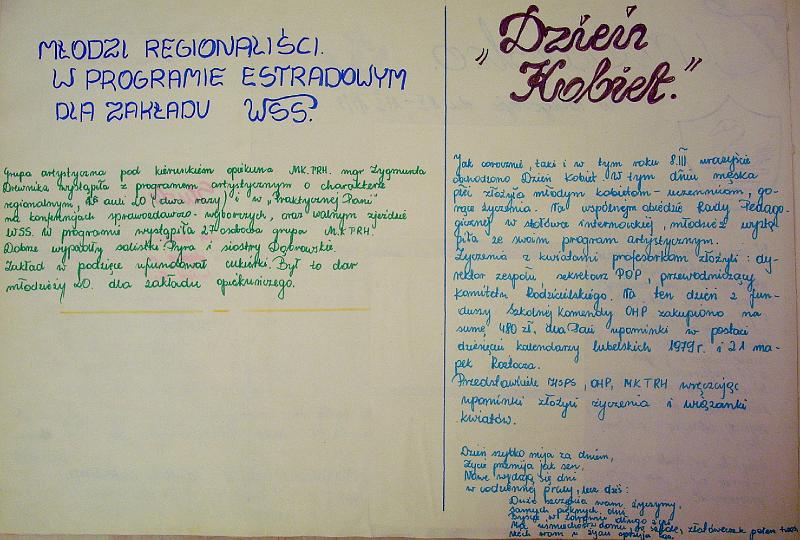 MŁODZI REGIONALIŚCI.
W PROGRAMIE ESTRADOWYM
DLA ZAKŁADU WSS.
Grupa artystyczna pod kierunkiem opiekuna MK.TRH. mgr Zygmunta
Drewnika wystąpiła z programem artystycznym o charakterze
regionalnym, w auli LO (dwa razy) i w „Praktycznej Pani"
na konferencjach sprawozdawczo-wyborczych, oraz walnym zjeździe
WSS. W programie wystąpiła 27 osobowa grupa MKTRH.
Dobrze wypadły solistki: Pyra i siostry Dąbrowskie.
Zakład w podzięce ufundował cukierki. Był to dar
młodzieży LO. dla zakładu opiekuńczego.
„Dzień
Kobiet."
Jak corocznie, tak i w tym roku 8.III uroczyście
obchodzono Dzień Kobiet W tym dniu męska
płeć złożyła młodym kobietom-uczennicom, go-
rące życzenia. Na wspólnym obiedzie Rady Pedago-
gicznej w stołówce internackiej, młodzież wystą-
piła ze swoim program artystycznym.
Życzenia z kwiatami profesorkom złożyli: dy-
rektor zespołu sekretarz POP, przewodniczący
komitetu Rodzicielskiego. Na ten dzień z fun-
duszy Szkolnej Komendy OHP zakupiono na
sumę 480 zł. dla Pań upominki w postaci
dziesięciu kalendarzy lubelskich 1979 r. i 21 ma-
pek Roztocza.
Przedstawiciele HSPS, OHP, MKTRH wręczając
upominki złożyli życzenia i wiązanki
kwiatów.
Dzień szybko mija za dniem,
Życie przemija jak sen.
Nowe wydają się dni
w codziennej pracy, lecz dziś:
Dużo szczęścia wam życzymy.
Samych pięknych dni
w zdrowiu długo żyć
uśmiechu w domu, w szkole,
Niech wam w życiu